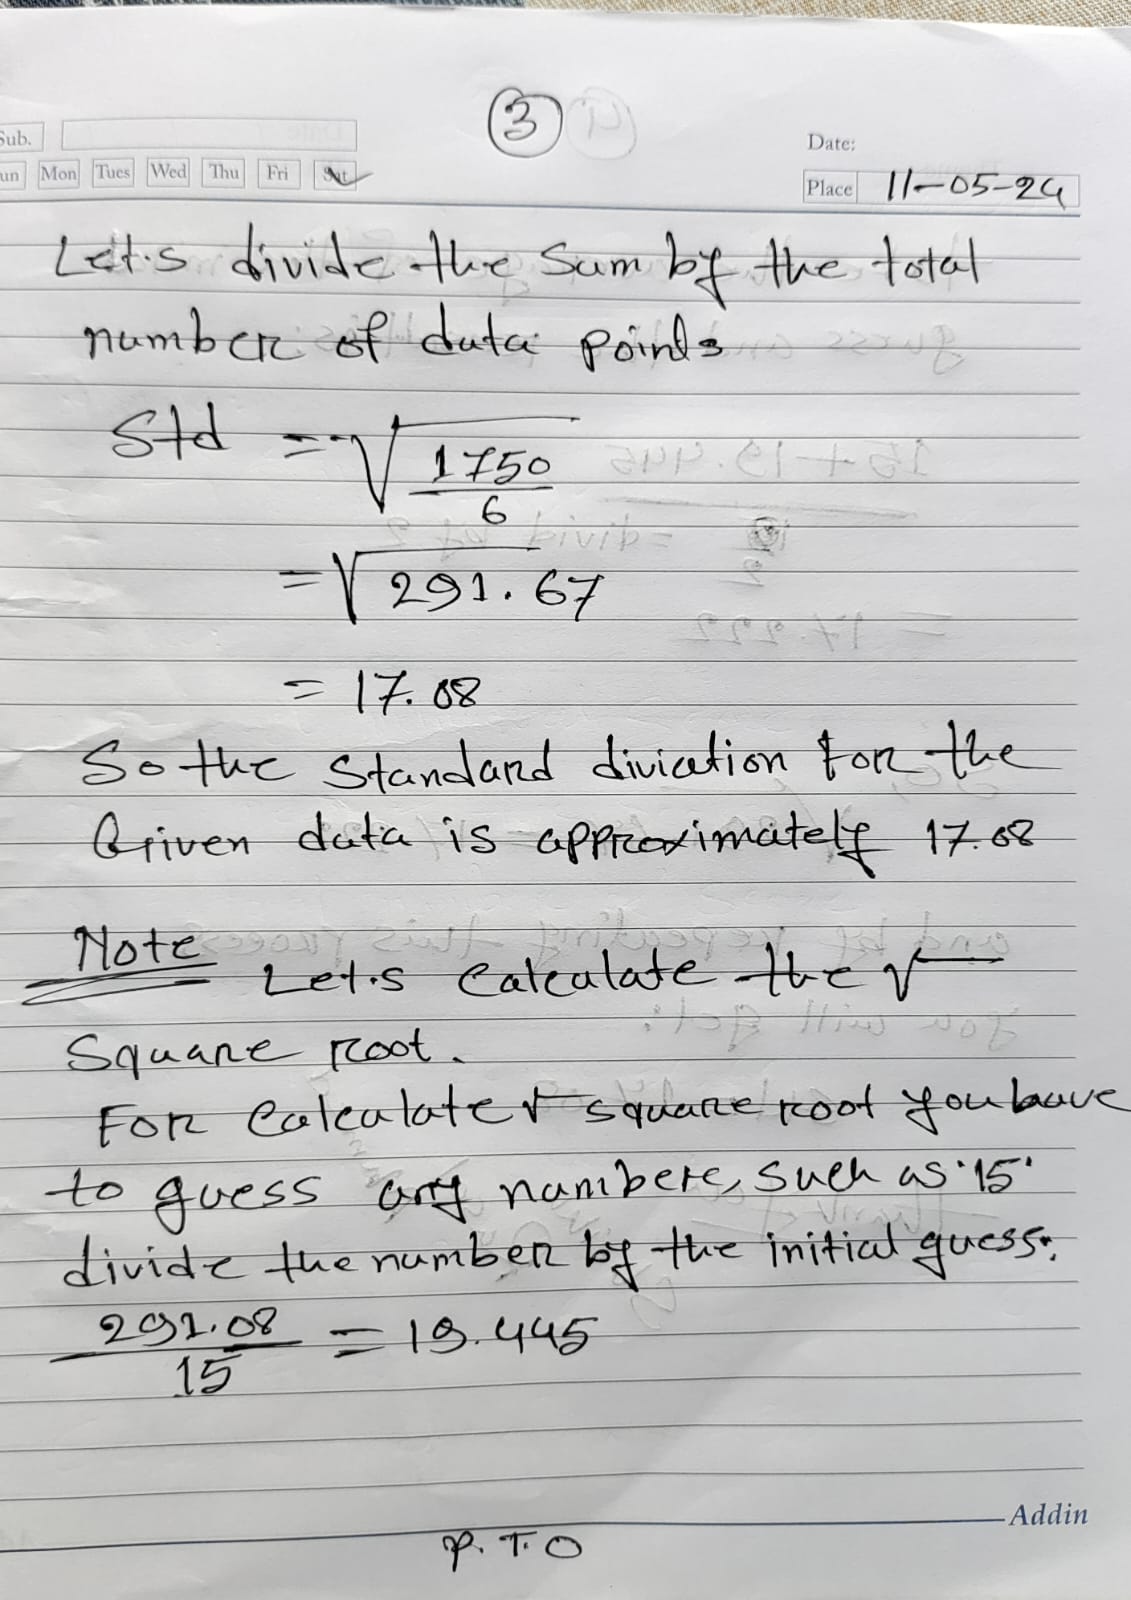 3
Sub.
Date:
un Mon Tues Wed Thu Fri Sat
Place 11-05-24
Let's divide the sum by the total
number of data points
Std = √1750/6
= √291.67
= 17.08
So the standard diviation for the
Given data is approximately 17.08
Note Let's calculate the √
Square root.
For calculate √ square root you have
to guess any number, such as '15'
divide the number by the initial guess:
291.08/15 = 19.445
Addin
P.T.O